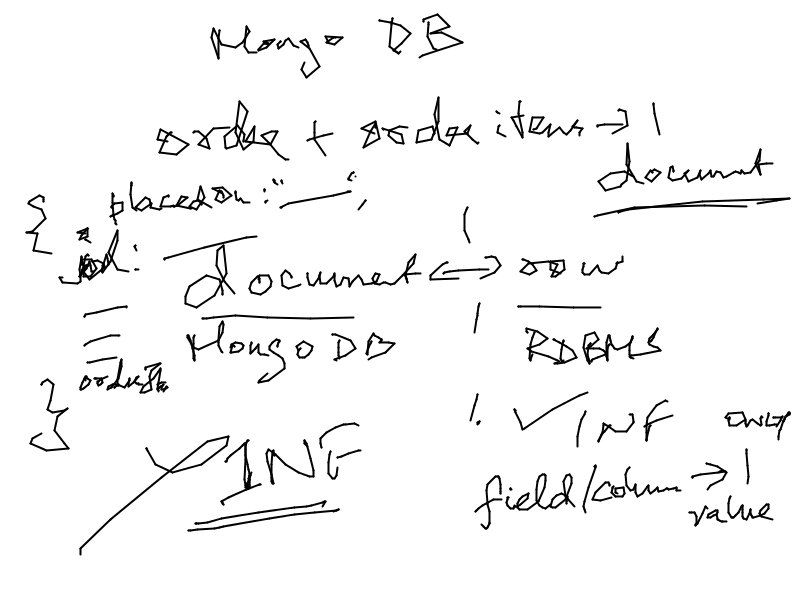 Mongo DB
order + order items → 1
document
{ placedon: "——",
id: ——
document ↔ row
MongoDB
RDBMS
}
1NF
✓ 1NF
only
field/column → 1
value